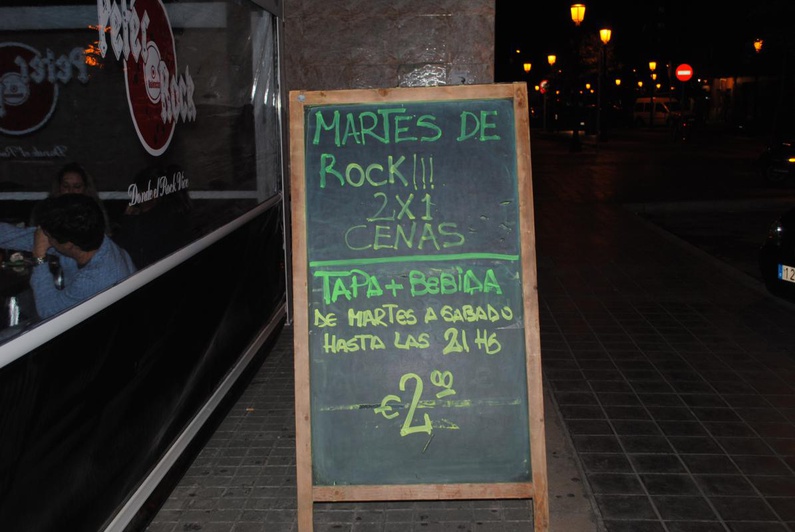 Peter
Rock
Donde el Rock Vive
MARTES DE
ROCK!!!
2X1
CENAS
TAPA + BEBIDA
DE MARTES A SABADO
HASTA LAS 21 HS
€2.00
12